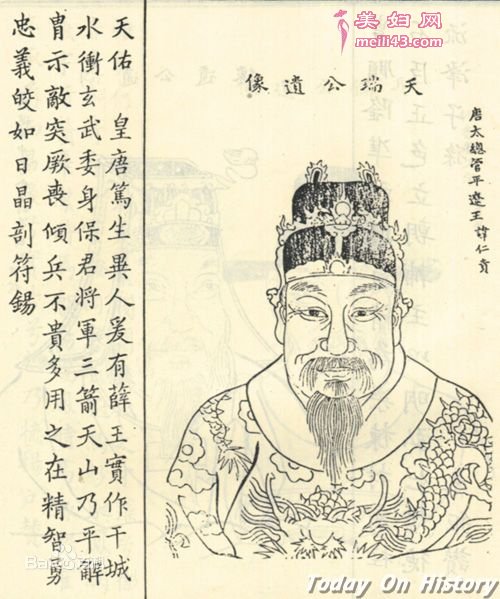 美妇网
meili43.com
唐太總管平遼王諱仁貴
天瑞公遺像
天佑 皇唐篤生異人爰有薛王實作干城
水衝玄武委身保君將軍三箭天山乃平解
冑示敵突厥喪傾兵不貴多用之在精智勇
忠義皎如日晶剖符錫
Today On History